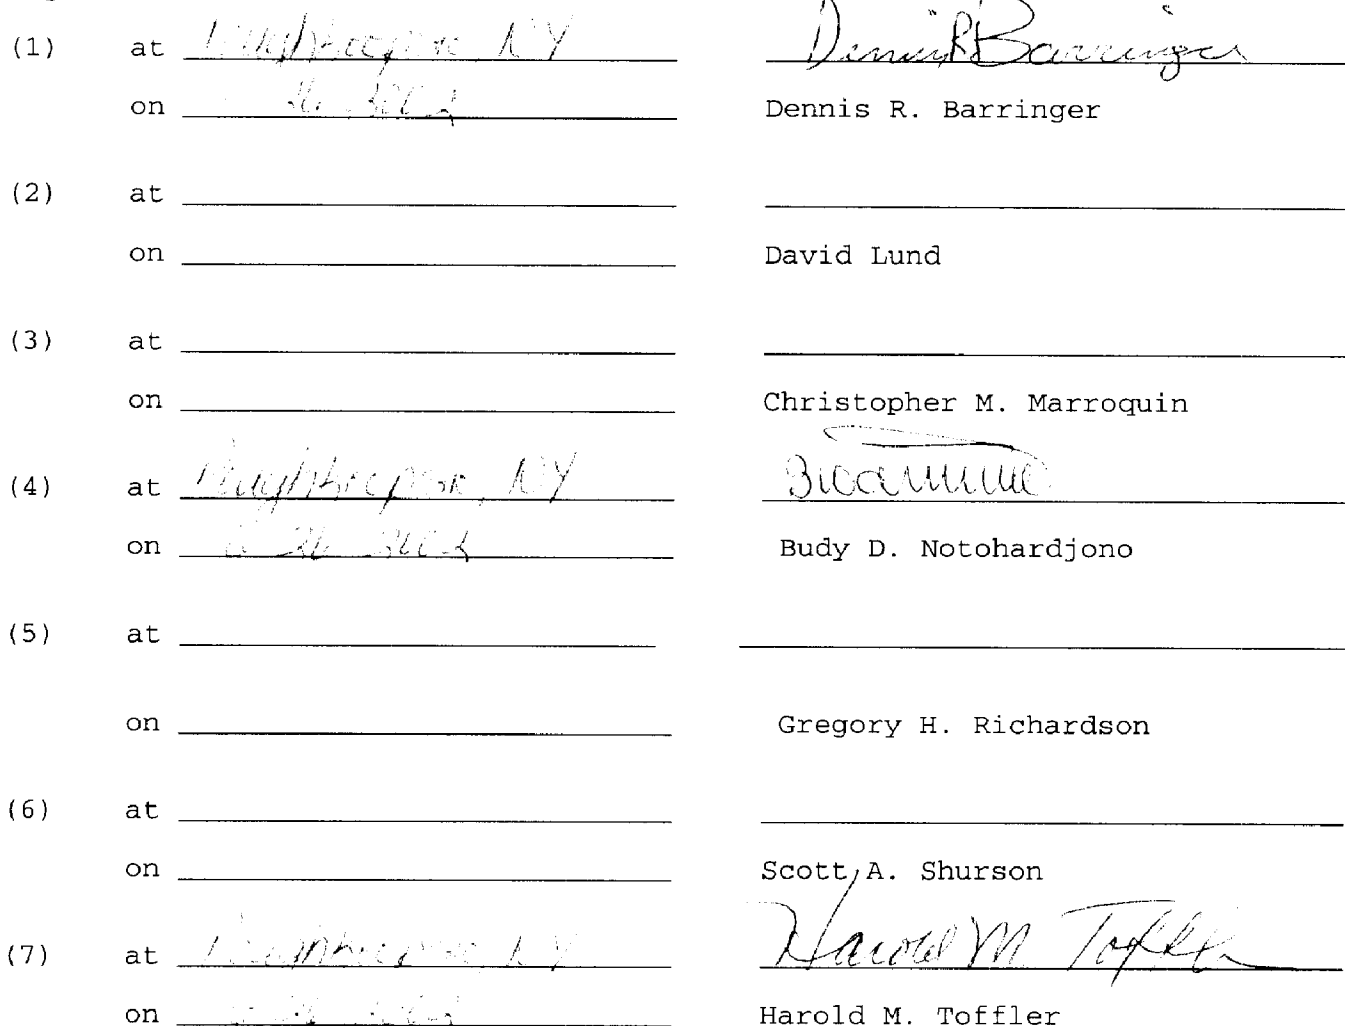 (1) at Poughkeepsie, NY Dennis R Barringer
on Dennis R. Barringer
(2) at
on David Lund
(3) at
on Christopher M. Marroquin
(4) at Poughkeepsie, NY
on Budy D. Notohardjono
(5) at
on Gregory H. Richardson
(6) at
on Scott A. Shurson
(7) at Poughkeepsie, NY Harold M. Toffler
on Harold M. Toffler